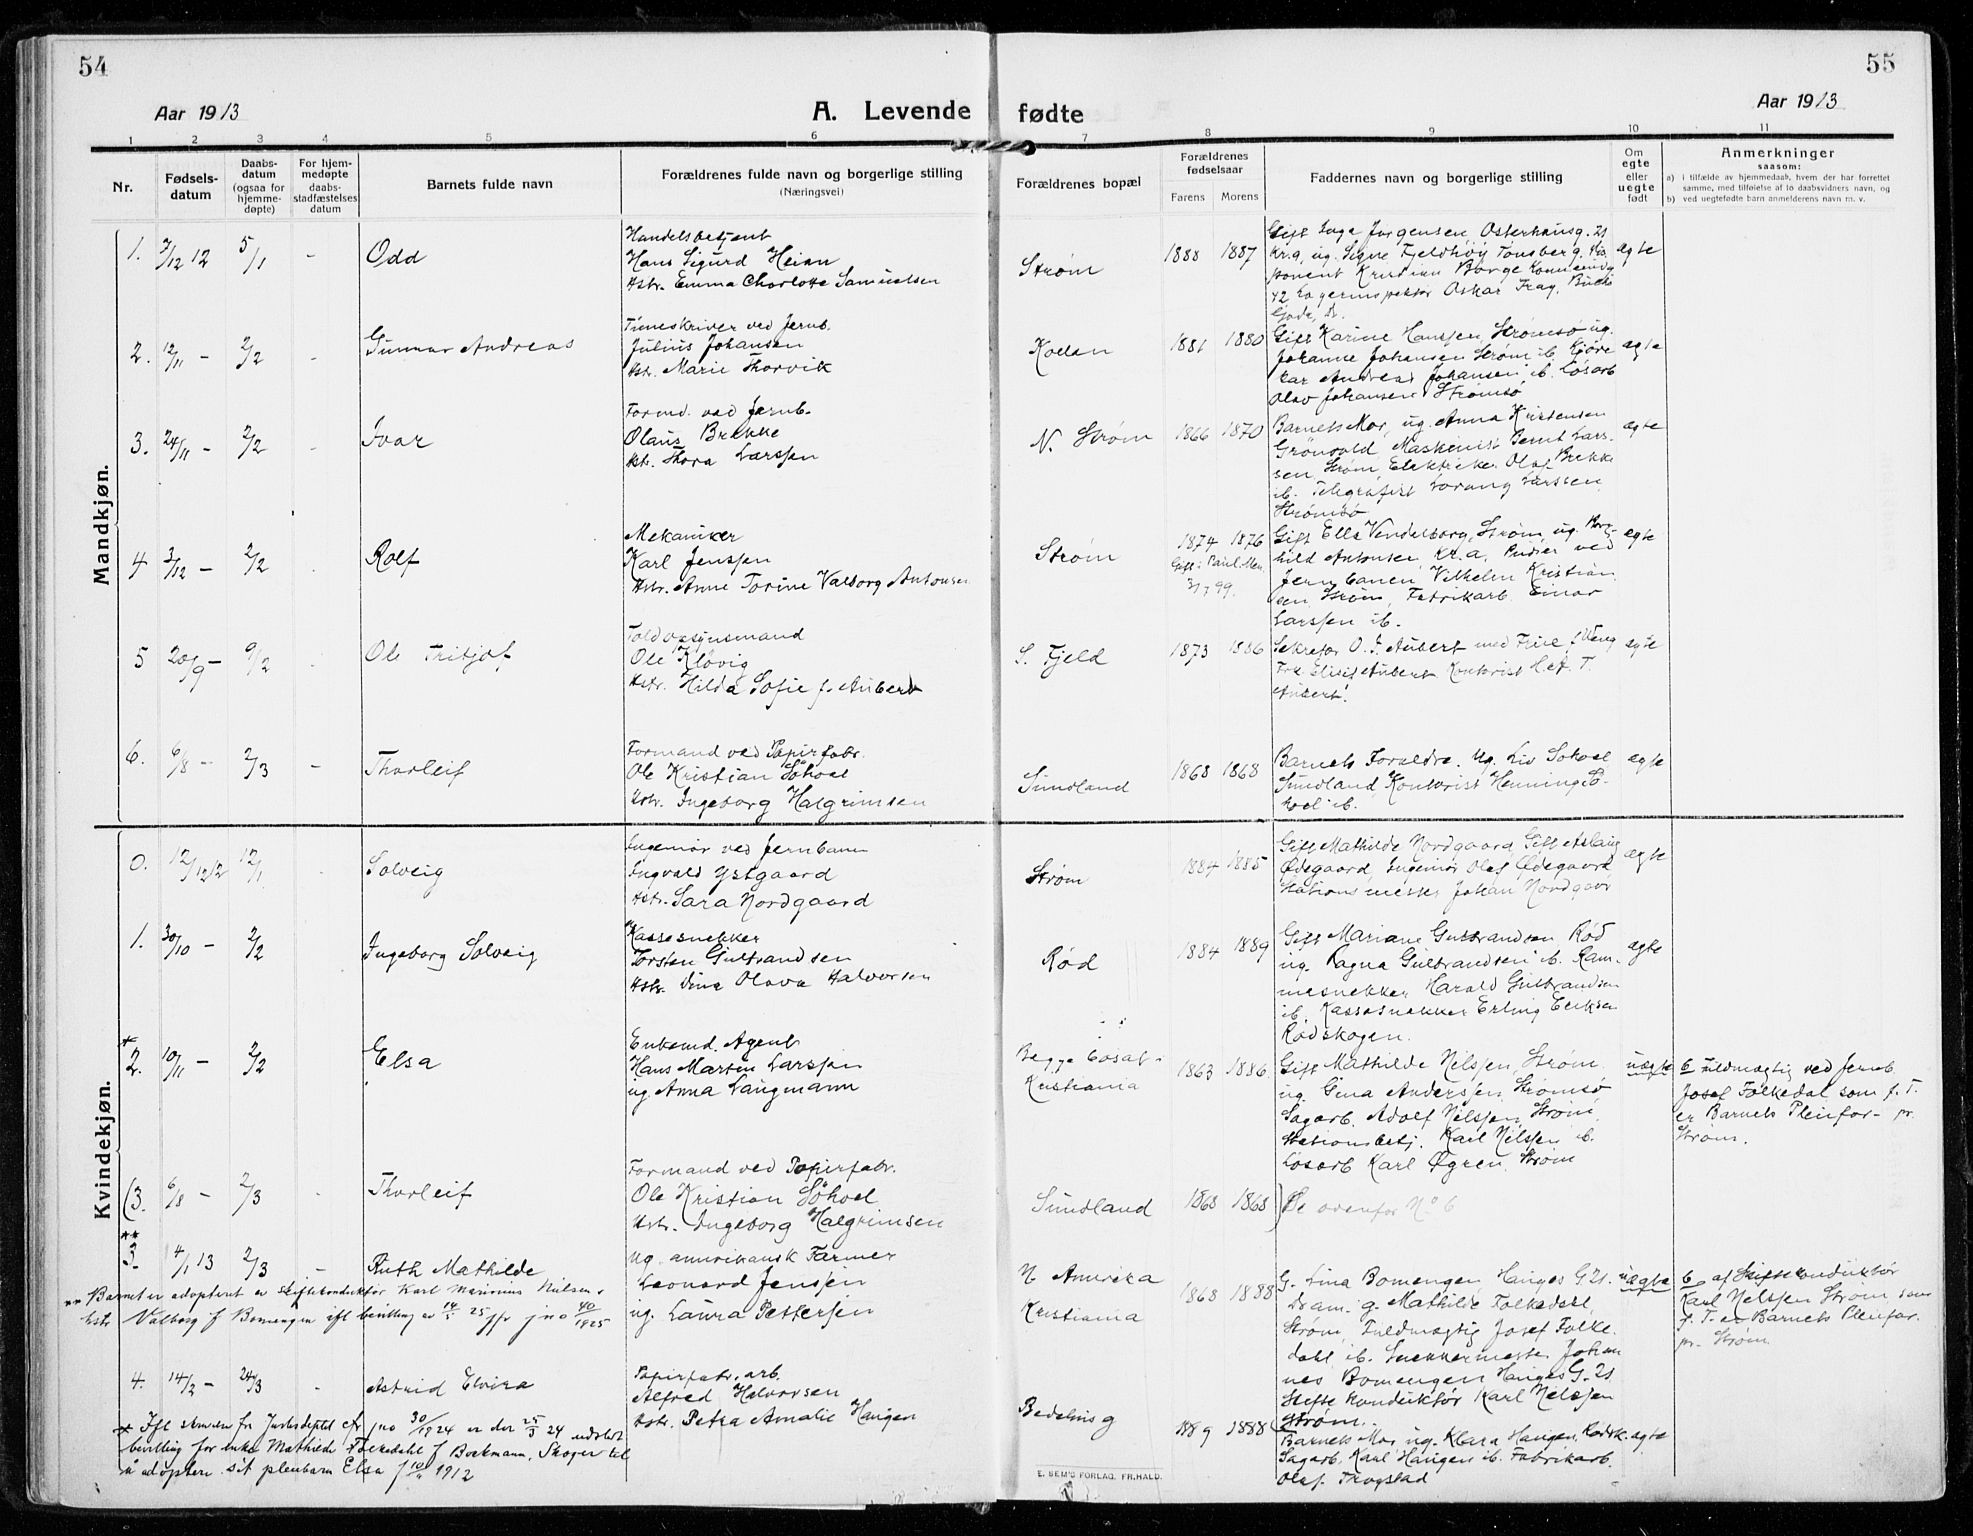 54
55
Aar 1913
A. Levende fødte
Aar 1913
1 2 3 4 5 6 7 8 9 10 11
Nr.
Fødsels-
datum
Daabs-
datum
(ogsaa for
hjemme-
døpte)
For hjem-
medøpte
daabs-
stadfæstelses
datum
Barnets fulde navn
Forældrenes fulde navn og borgerlige stilling
(Næringsvei)
Forældrenes bopæl
Forældrenes
fødselsaar
Farens
Morens
Faddernes navn og borgerlige stilling
Om
egte
eller
uegte
født
Anmerkninger
saasom:
a) i tilfælde av hjemmedaab, hvem der har forrettet
samme, med tilføielse af to daabsvidners navn, og
b) ved uegtefødte barn anmelderens navn m. v.
Mandkjøn.
1. 7/12 12 5/1 - Odd
Handelsbetjent
Hans Sigurd Heian
Hstr. Emma Charlotte Samuelsen
Strøm
1888 1887
Gift Inga Jørgensen Osterhausg. 21
Kr.a, ug. Signe Fjeldhøy Tønsberg,
ponent Kristian Borge
42 Lagerinspektør Oskar Frag,
Gade, Dr.
egte
2. 12/11 - 2/2
Gunnar Andreas
Timeskriver ved Jernb.
Julius Johansen
Hstr. Marie Thorvik
Kodan
1881 1880
Gift Karine Hanssen, Strømsø ug.
Johanne Johansen Strøm ib. Kjøre
kar Andreas Johansen ib. Løsarb
Olav Johansen Strømsø
egte
3. 24/11 - 2/2
Ivar
Formd. ved Jernb.
Olaus Brekke
Hstr. Thora Larssen
N. Strøm
1866 1870
Barnets Mor, ug. Anna Kristensen
Grönvold, Maskinist Bernt Lars-
sen, Strøm Elektriker Olaf Brekke
ib. Telegrafist Lorang Larssen,
Strømsø
egte
4 3/12 - 2/2
Rolf
Mekaniker
Karl Jenssen
Hstr. Anne Torine Valborg Antonsen
Strøm
1874 1876
Gift: 99.
Gift Ella Vendelborg, Strøm, ug. Borg-
hild Antonsen, Kr.a, Pudser ved
Jernbanen Vilhelm Kristian
sen Strøm, Fabrikarb. Einar
Larssen ib.
egte
5 20/9 - 9/2
Ole Fritjof
Toldopsynsmand
Ole Kløvig
Hstr. Hilda Sofie f. Aubert
S. Fjeld
1873 1886
Sekretær O. F. Aubert med Frue f.
Frk. Elise Aubert Kontorist H. A. T.
Aubert.
egte
6. 6/8 - 2/3 -
Thorleif
Formand ved Papirfabr.
Ole Kristian Söhoel
Hstr. Ingeborg Halgrimsen
Sundland
1868 1868
Barnets Forældre. Ug. Liv Sohoel
Sundland, Kontorist Henning So-
hoel ib.
egte
Kvindekjøn.
0. 12/12 12 12/1
Solveig
Ingeniør ved Jernbanen
Ingvald Ystgaard
Hstr. Sara Nordgaard
Strøm
1884 1885
Gift Mathilde Nordgaard, Gift Aslaug
Ødegaard, Ingeniør Olaf Ødegaard
Stationsmester Johan Nordgaar
egte
1. 30/10 - 2/2
Ingeborg Solveig
Kassesnekker
Torsten Gulbrandsen
Hstr. Dina Olava Halvorsen
Rød
1884 1889
Gift Mariane Gulbrandsen Rød
ug. Ragna Gulbrandsen ib. Ram-
mesnekker Harald Gulbrandsen
ib. Kassesnekker Erling Eriksen
Rødskogen.
egte
*
2. 10/11 - 2/2
Elsa
Enkemd. Agent
Hans Martin Larssen
ug Anna Langmann
Begge bosat i
Kristiania
1863 1886
Gift Mathilde Nilssen, Strøm
ug. Gina Anderssen, Strømsø
Sagarb. Adolf Nilssen, Strøm,
Stationsbetj. Karl Nilssen ib.
Løsarb Karl Øgren, Strøm
uegte
b fuldmægtig ved Jernb
Josef Folkedal som f. T.
er Barnets Pleiefar- pr.
Strøm.
(3. 6/8 - 2/3 -
Thorleif
Formand ved Papirfabr.
Ole Kristian Söhoel
Hstr. Ingeborg Halgrimsen
Sundland
1868 1868
Se ovenfor No 6
**
3. 4/1 13 2/3 -
Ruth Mathilde
Ug. amerikansk Farmer
Leonard Jenssen
ug. Laura Pettersen
N. Amerika
Kristiania
1868 1888
G. Lina Bomengen Hauges G. 21.
Dram. g. Mathilde Folkedal,
Strøm, Fuldmægtig Josef Folke-
dal, ib. Snekkermester Johan
nes Bomengen Hauges G. 21
Skiftekonduktør Karl Nilssen
Strøm.
uegte
b af Skiftekonduktør
Karl Nilssen Strøm som
f. T. er Barnets Pleiefar.
pr. Strøm
** Barnet er adopteret av skiftekonduktør Karl Marinius Nielsen og
hstr Valborg f Bomengen ifl bevilling av 14/5 25 jfr jno 40/1925
4. 14/2 - 24/3 -
Astrid Elvira
Papirfabr. arb.
Alfred Halvorsen
Hstr. Petra Amalie Haugen
Bedehusg
1889 1888
Barnets Mor, ug. Klara Haugen, Rødsk.
Sagarb. Karl Haugen ib. Fabrikarb.
Olaf Trøgstad
egte
* Ifl skrivelse fr Justisdeptet jno 30/1924 er der 25/3 24 utstedt
bevilling for enke Mathilde Folkedahl f Bockmann, Skoger til
å adoptere sit pleiebarn Elsa f 10/11 1912
E. SEM'S FORLAG, FR.HALD.